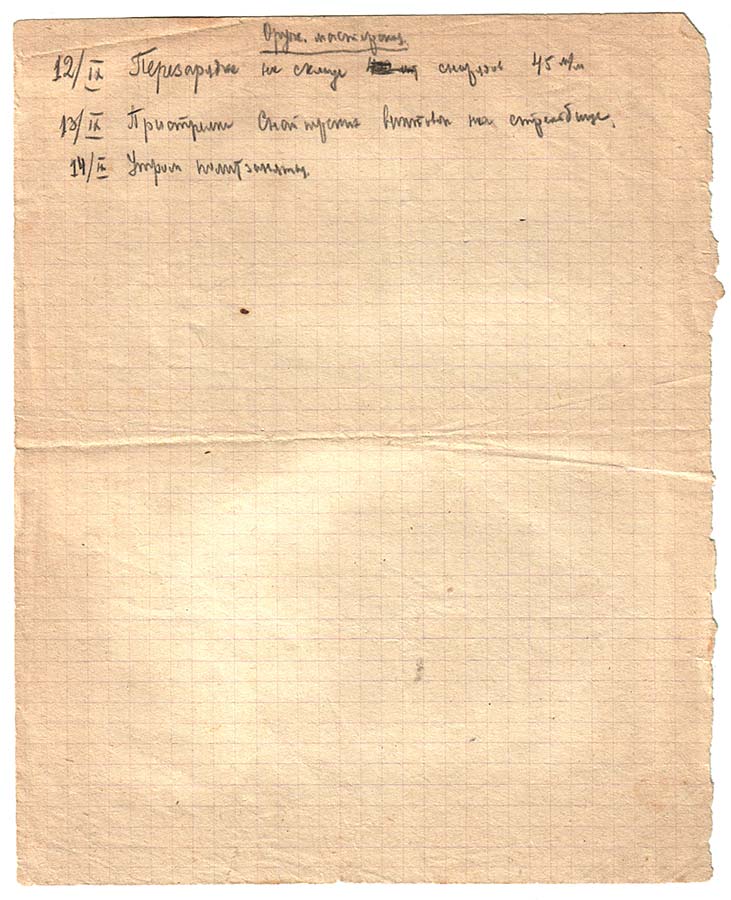 Оруж. мастерская.
12/IX Перезарядка на складе снарядов 45 м/м
13/IX Пристрелка Снайперских винтовок на стрельбище.
14/IX Утром политзанятия.